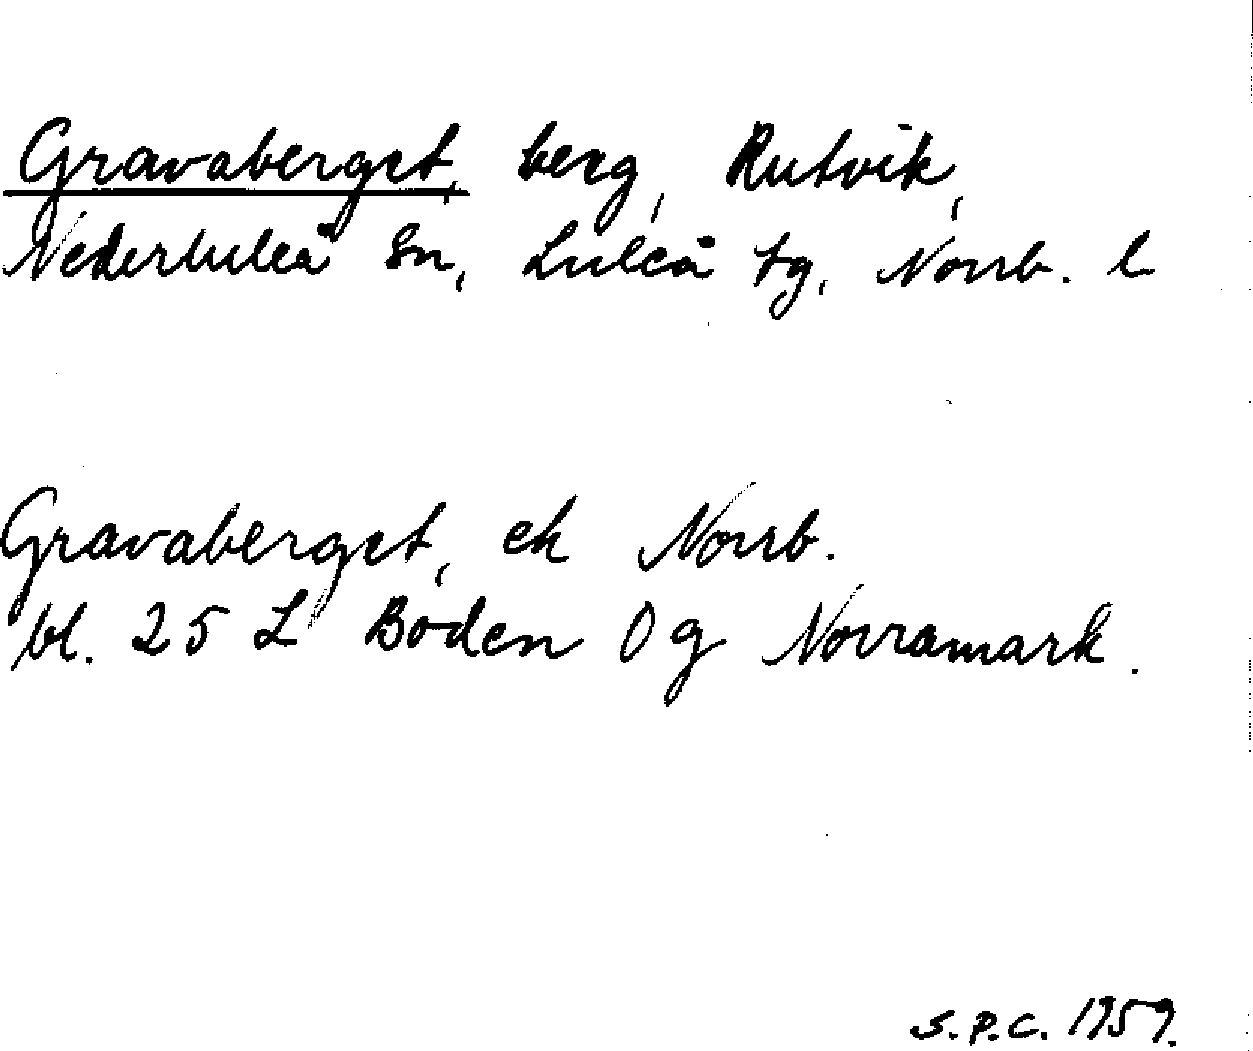 Gravaberget, berg, Rutvik,
Nederluleå Sn, Luleå tg, Norrb. l
Gravaberget, ek Norrb.
bl. 25 L Boden 0 g Norramark.
S.P.C. 1959.